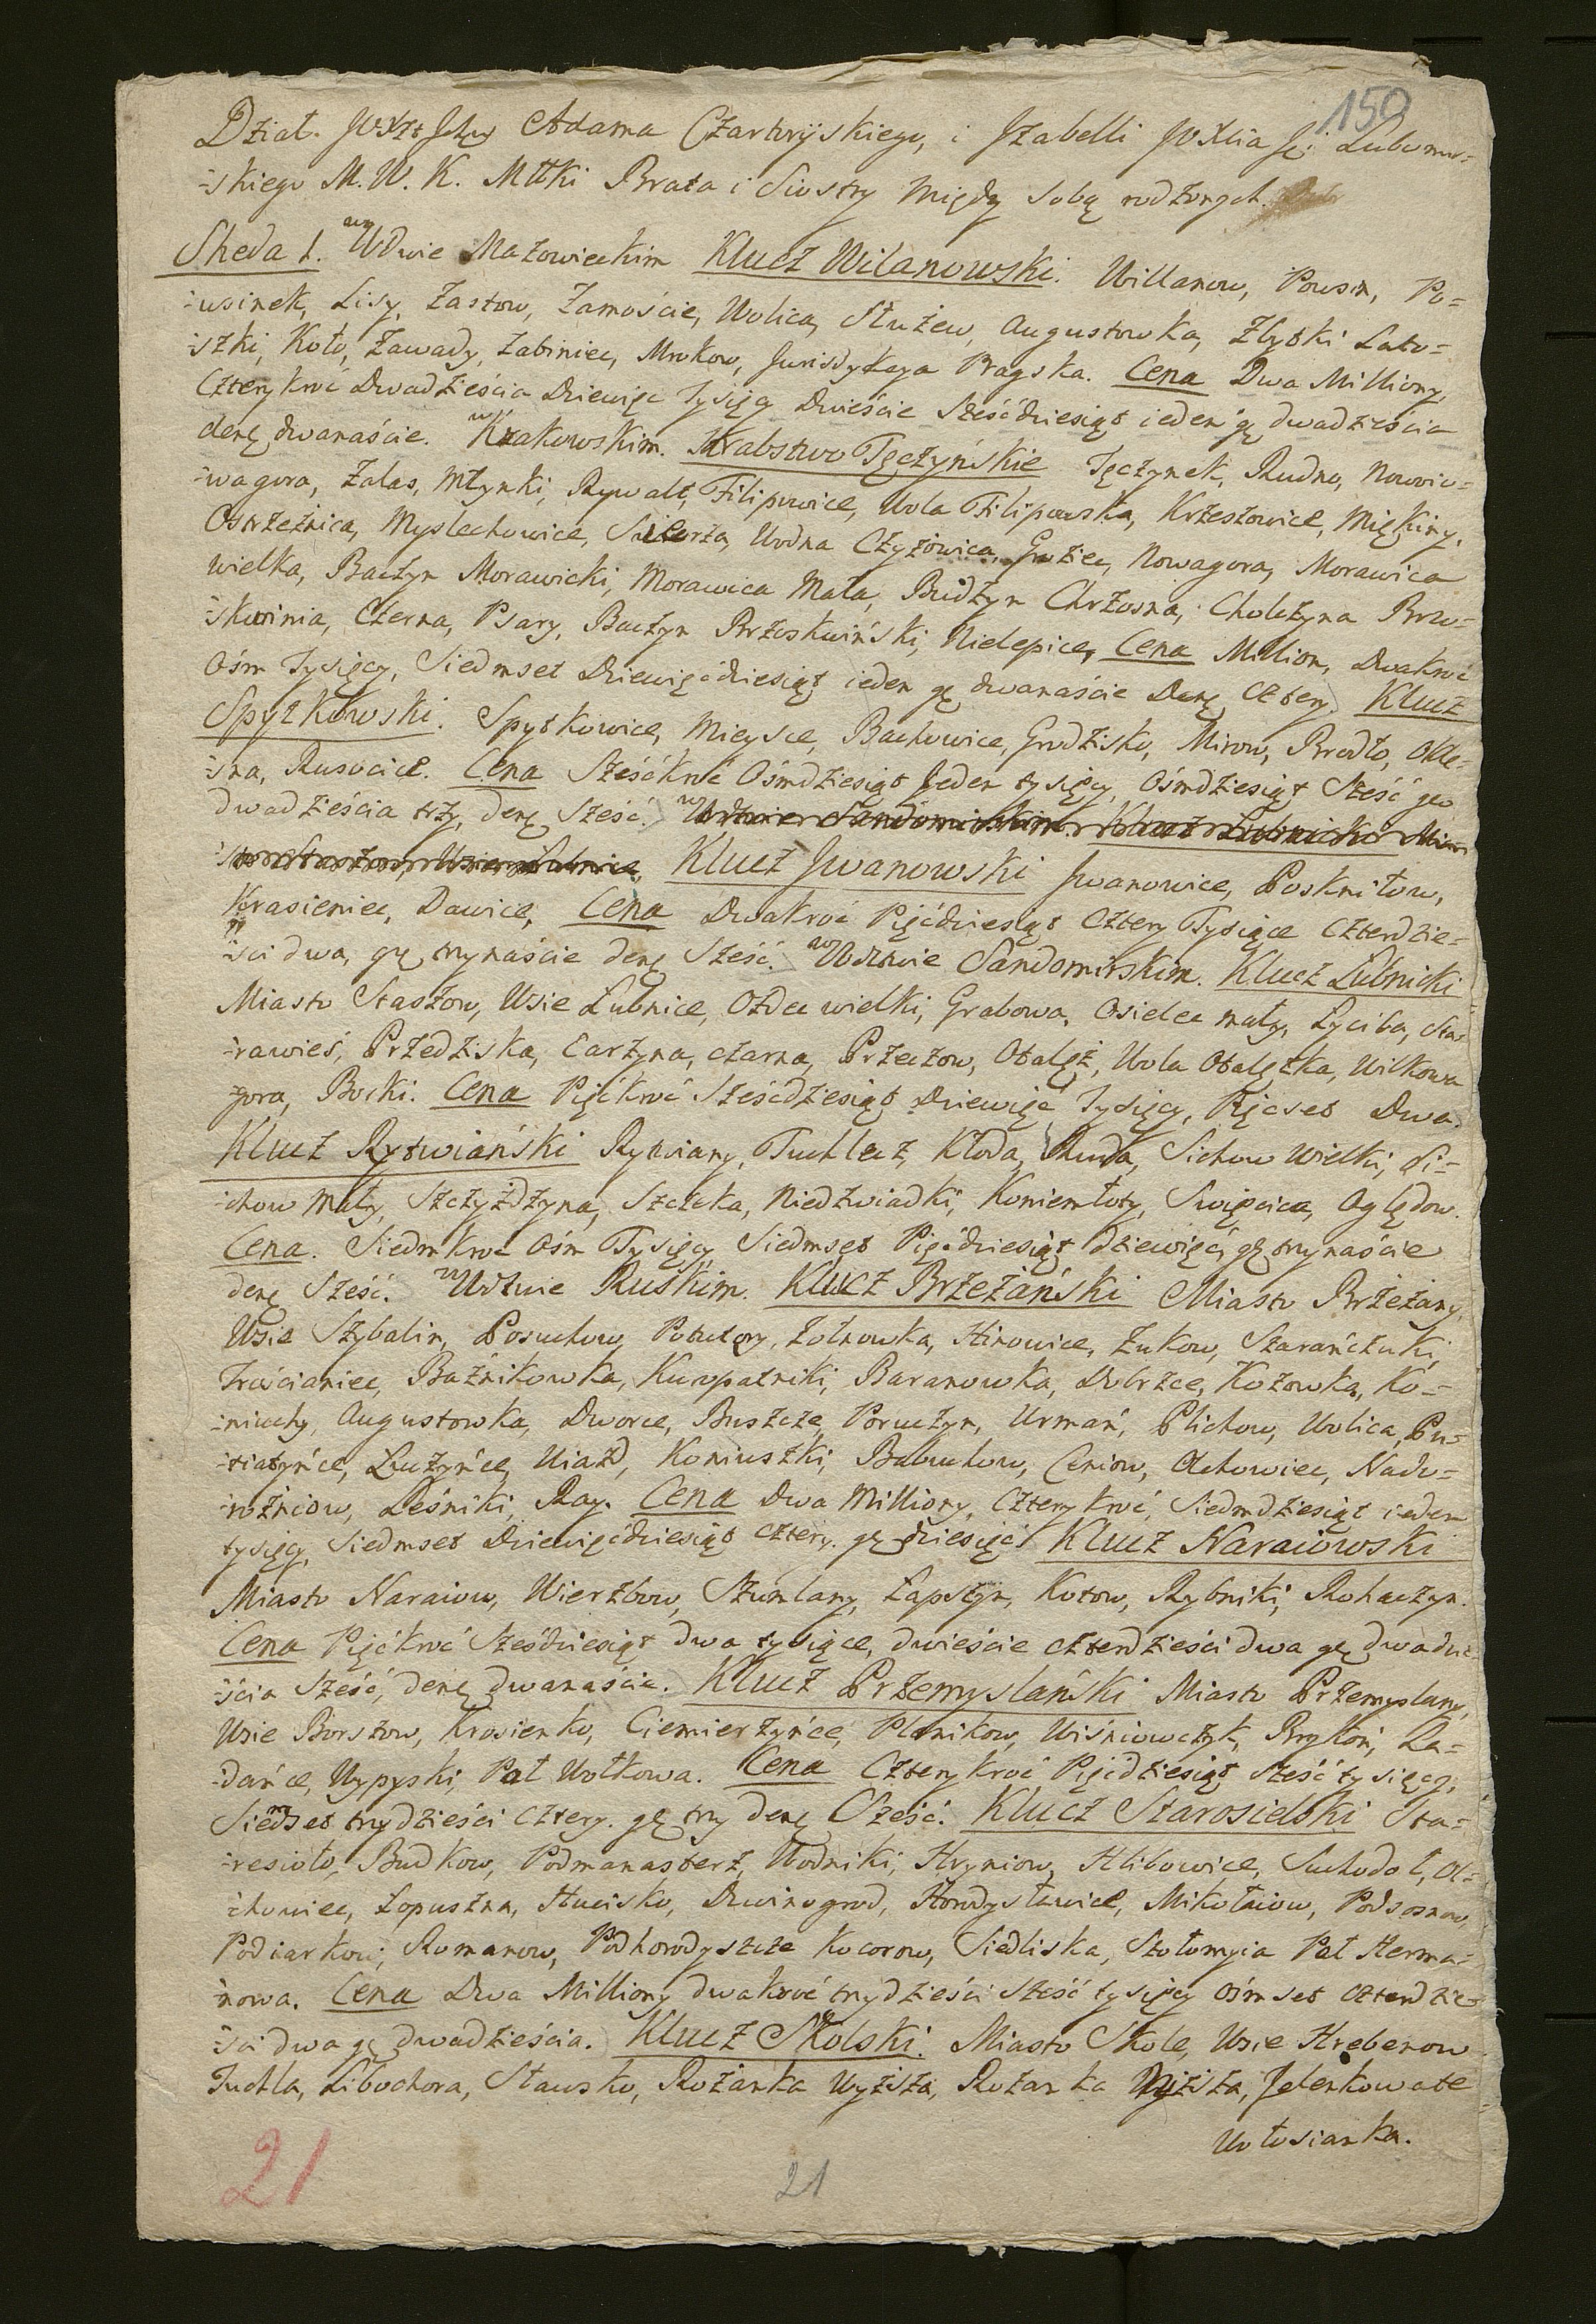 150
Dział. JWXż Jchm Adama Czartoryskiego, i Izabelli JWXcia Je: Lubomir=
=skiego M. W. K. Mttki Brata i Siostry między sobą rodzonych.
Sheda 1. w Wdwie Mazowieckim Klucz Wilanowski. Willanow, Powsin, Po=
=wsinek, Lisy, Zastow, Zamoście, Wolica, Służew, Augustowka, Zbytki Lato=
=szki, Koło, Zawady, Zabiniec, Mrokow, Jurisdykcya Pragska. Cena Dwa Milliony,
Czterykroć Dwadzieścia Dziewięc Tysięcy Dwieście Sześćdziesiąt ieden gę dwadzieścia
denę dwanaście. w Krakowskim. Hrabstwo Tęczyńskie Tęczynek, Rudno, Nowoio=
=wagora, Zalas, Młynki, Rywałt, Filipowice, Wola Filipowska, Krzeszowice, Miękiny,
Ostrzeżnica, Myslechowice, Siersza, Wodna Czyżowica, Groziec, Nowagora, Morawica
wielka, Baczyn Morawicki, Morawica Mała, Budzyn Chrzosna, Cholczyna Brzo=
=skwinia, Czerna, Psary, Baczyn Brzoskwiński, Nielepice, Cena Million, Dwakroć
Ośm Tysięcy, Siedmset Dziewięćdziesiąt ieden gę dwanaście Denę Cztery. Klucz
Spytkowski. Spytkowice, Mieysce, Bachowice, Grodzisko, Mirow, Brodło, Okle=
=sna, Rusocice. Cena Sześćkroć Ośmdziesiąt Jeden tysięcy, Ośmdziesiąt Sześć gro
dwadzieścia trzy, denę Sześć. w
Klucz Jwanowski Jwanowice, Poskwitow,
Krasieniec, Dawice, Cena Dwakroć Pięćdziesiąt Cztery Tysiące Czterdzie=
=ści dwa, gę trzynaście denę Sześć. w Wdztwie Sandomirskim. Klucz Łubnicki
Miasto Staszow, Wsie Łubnice, Ozdec wielki, Grabowa, Osielec mały, Łyciba, Sta=
=rawieś, Przedziska, Carzyna, czarna, Przeczow, Obalęż, Wola Obalęzka, Wilkowa
gora, Borki. Cena Pięćkroć Sześćdziesiąt Dziewięć Tysięcy, Pięcset Dwa.
Klucz Rytwiański Rytwiany, Tuchlecz, Kłoda, Ruda, Sichow Wielki, Si=
=chow Mały, Szczyżdzyna, Szczeka, Niedzwiadki, Koniemłoty, Swięcica, Oględow.
Cena. Siedmkroć Ośm Tysięcy Siedmset Pięćdziesiąt dziewięć, gę trzynaście
denę Sześć. w Wdztwie Ruskim. Klucz Brzeżański Miasto Brzeżany,
Wsie Szybalin, Posuchow, Potutory, Żołnowka, Hinowice, Żukow, Szarańczuki,
Trościaniec, Baźnikowka, Kuropatniki, Baranowka, Dobrzce, Kozowka, Ko=
=niuchy, Augustowka, Dworce, Buszcze, Poruczyn, Urmań, Plichow, Wolica, Pu=
=tiatyńce, Łuczyńce, Uiazd, Koniuszki, Babuchow, Ceniow, Olchowiec, Nado=
=rożniow, Leśniki, Ray. Cena Dwa Milliony, Czterykroć, Siedmdziesiąt ieden
tysięcy, Siedmset Dziewięćdziesiąt cztery. gę dziesięć. Klucz Naraiowski
Miasto Naraiow, Wierzbow, Szumlany, Łapszyn, Kotow, Rybniki, Rohaczyn.
Cena Pięćkroć Sześdziesiąt dwa tysiące, dwieście czterdzieści dwa gę dwadzie=
=ścia Sześć, denę dwanaście. Klucz Przemyslański Miasto Przemyslany,
Wsie Borszow, Krosienko, Ciemierzyńce, Plenikow, Wiśniowczyk, Brykoń, Ła=
=dańce, Wypyski, Pat Wołkowa. Cena Czterykroć Pięćdziesiąt sześć tysięcy,
Siedmset trzydzieści Cztery. gę trzy denę Sześć. Klucz Starosielski Sta=
=resioło, Budkow, Podmanasterz, Wodniki, Hryniow, Hlibowice, Suchodoł, Ol=
=chowiec, Łopuszna, Hucisko, Dzwinogrod, Horodysławice, Mikołaiow, Podsosnow,
Podiarkow, Romanow, Podhorodyszcze Kocorow, Siedliska, Szołomyia Pat Herma=
=nowa. Cena Dwa Milliony dwakroć trzydzieści sześć tysięcy ośmset czterdzie=
=ści dwa gę dwadzieścia. Klucz Skolski. Miasto Skole, Wsie Hrebenow
Tuchla, Libochora, Sławsko, Rożanka Wyższa, Rożanka Niższa, Jelenkowate
Wołosianka.
21
21